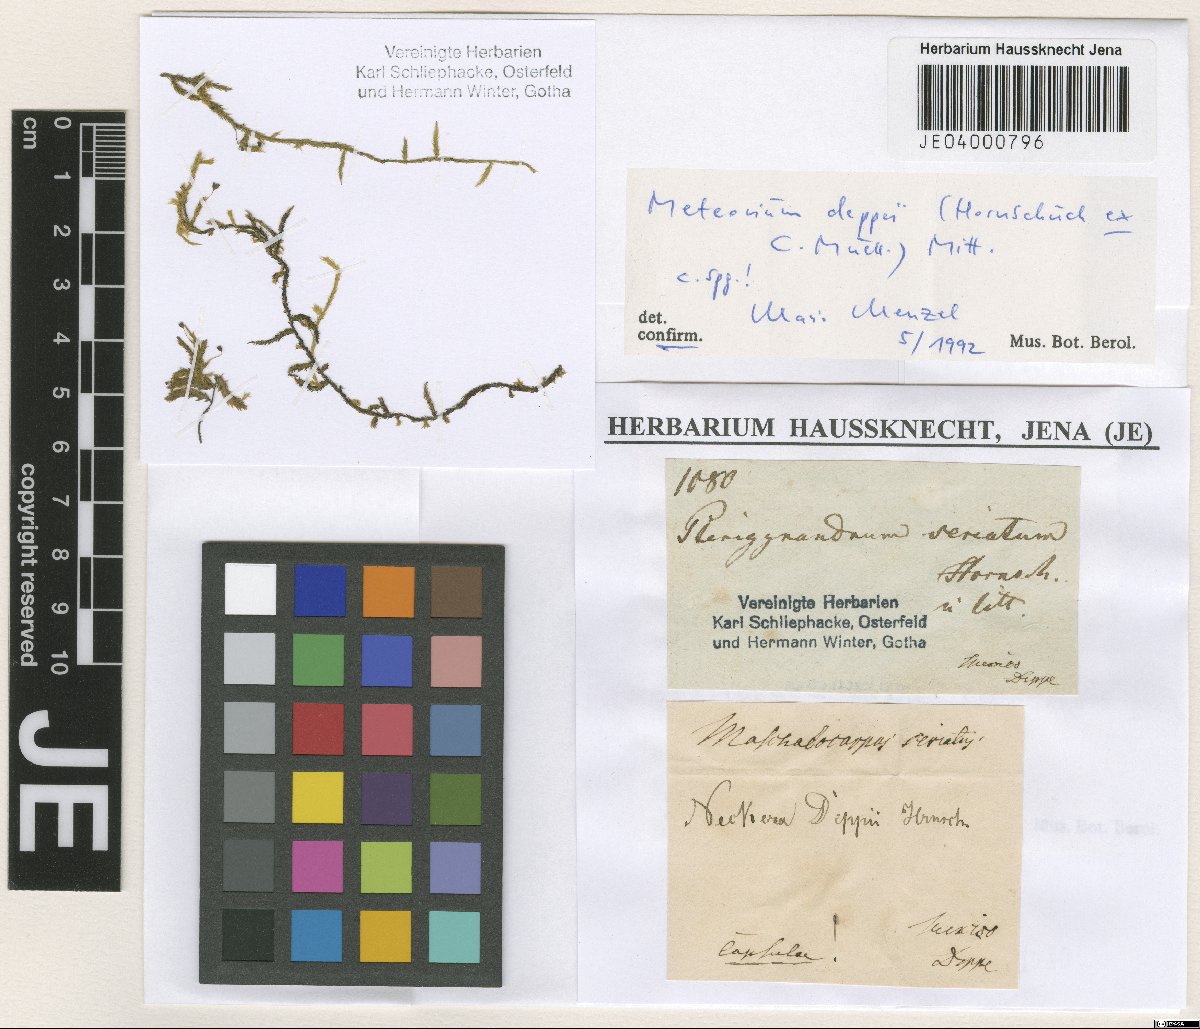 Vereinigte Herbarien
Karl Schliephacke, Osterfeld
und Hermann Winter, Gotha
Herbarium Haussknecht Jena
JE04000796
Meteorium deppii (Hornschuch ex
C. Müll.) Mitt.
c. spg.!
Menzel
det.
confirm.
5/1992
Mus. Bot. Berol.
cm
0
1
2
3
4
5
6
7
8
9
10
copyright reserved
JE
HERBARIUM HAUSSKNECHT, JENA (JE)
1080
Pterigynandrum seriatum
Hornsch.
in litt.
Vereinigte Herbarien
Karl Schliephacke, Osterfeld
und Hermann Winter, Gotha
Mexico
Deppe
Maschalocarpus seriatus.
Neckera Deppii Hrnsch
Capsulae !
Mexico
Deppe